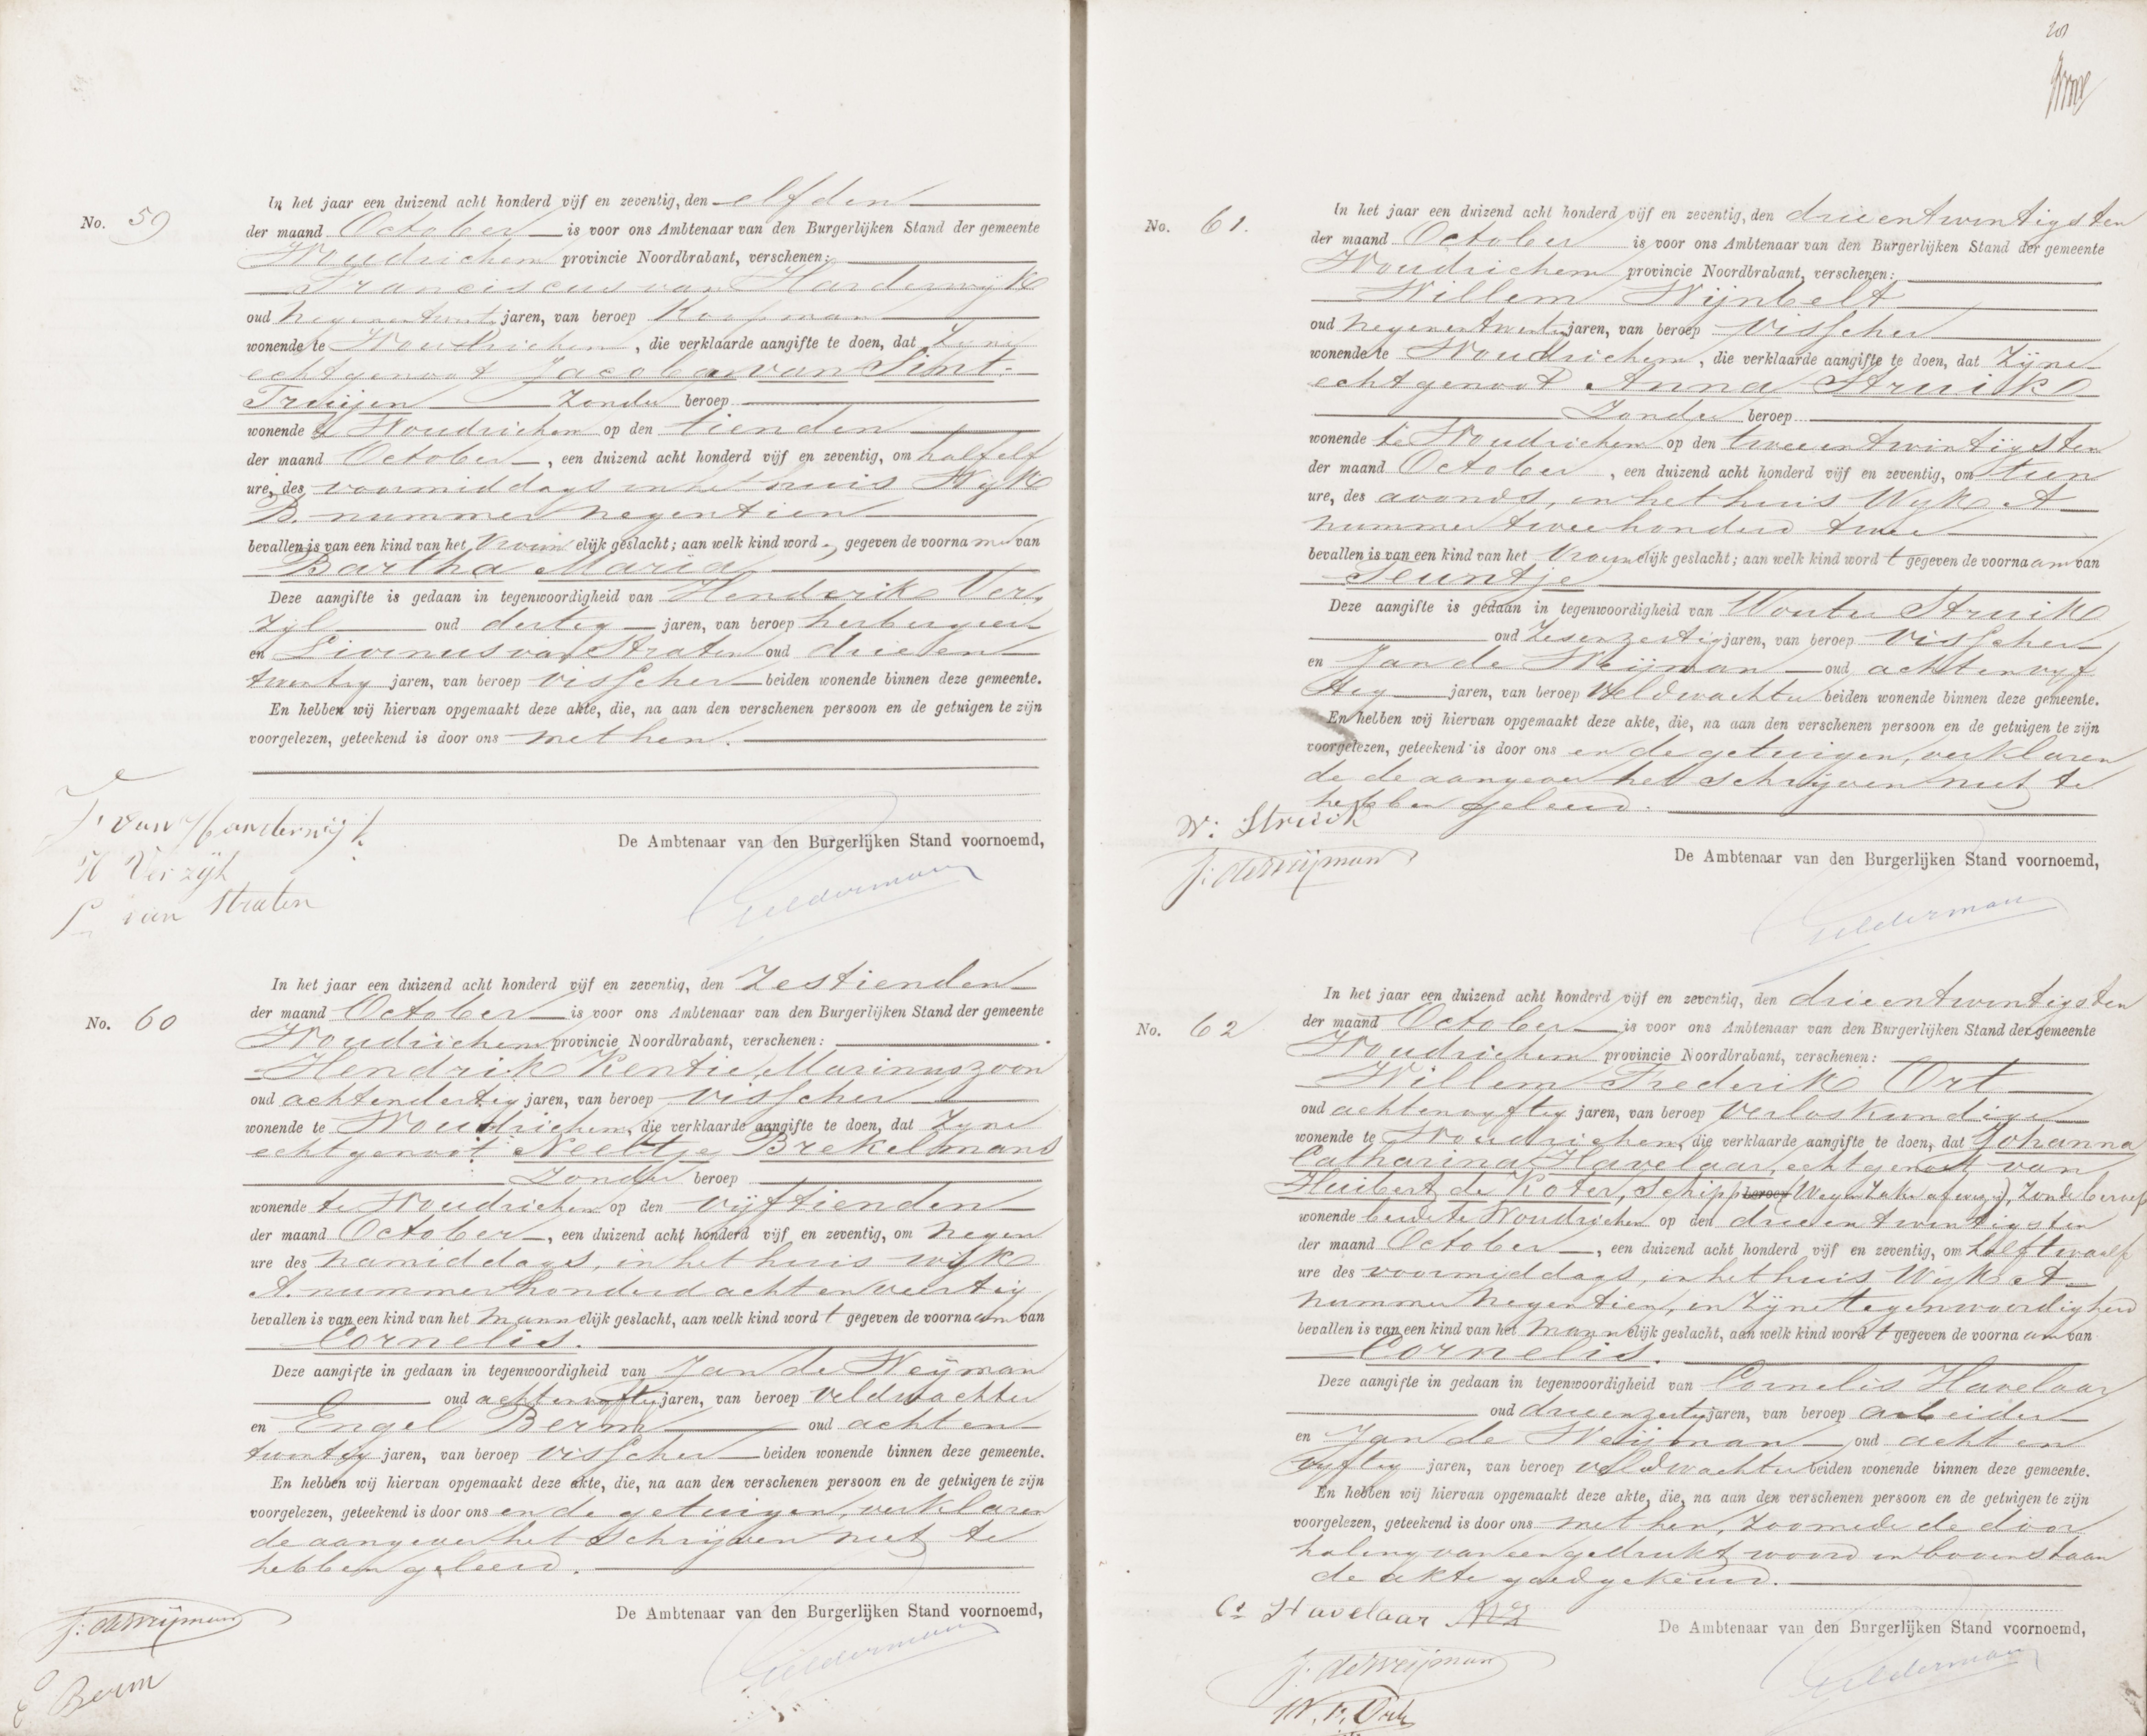 No. 59
In het jaar een duizend acht honderd vijf en zeventig, den elfden
der maand October is voor ons Ambtenaar van den Burgerlijken Stand der gemeente
Woudrichem provincie Noordbrabant, verschenen:
Franciscus van Harderwijk
oud negenentwintig jaren, van beroep Koopman
wonende te Woudrichem, die verklaarde aangifte te doen, dat zijne
echtgenoot Jacoba van Sint-
Truijen zonder beroep
wonende te Woudrichem op den tienden
der maand October, een duizend acht honderd vijf en zeventig, om half elf
ure, des voormiddags in het huis Wijk
B. nummer negentien
bevallen is van een kind van het vrouwelijk geslacht; aan welk kind word gegeven de voorna men van
Bartha Maria
Deze aangifte is gedaan in tegenwoordigheid van Henderik Ver-
zijl oud dertig jaren, van beroep herbergier
en Livinus van Straten oud drieen
twintig jaren, van beroep visscher beiden wonende binnen deze gemeente.
En hebben wij hiervan opgemaakt deze akte, die, na aan den verschenen persoon en de getuigen te zijn
voorgelezen, geteekend is door ons met hen.
F van Harderwijk
H Verzijl
L van Straten
De Ambtenaar van den Burgerlijken Stand voornoemd,
Gelderman
No. 60
In het jaar een duizend acht honderd vijf en zeventig, den zestienden
der maand October is voor ons Ambtenaar van den Burgerlijken Stand der gemeente
Woudrichem provincie Noordbrabant, verschenen:
Hendrik Kentie, Marinuszoon
oud achtendertig jaren, van beroep visscher
wonende te Woudrichem, die verklaarde aangifte te doen, dat zijne
echtgenoot Neeltje Brekelmans
zonder beroep
wonende te Woudrichem op den vijftienden
der maand October, een duizend acht honderd vijf en zeventig, om negen
ure des namiddags, in het huis wijk
A. nummer honderd acht en veertig
bevallen is van een kind van het mannelijk geslacht, aan welk kind word t gegeven de voorna am van
Cornelis.
Deze aangifte in gedaan in tegenwoordigheid van Jan de Weijman
oud achtenvijftig jaren, van beroep veldwachter
en Engel Berm oud achten
twintig jaren, van beroep visscher beiden wonende binnen deze gemeente.
En hebben wij hiervan opgemaakt deze akte, die, na aan den verschenen persoon en de getuigen te zijn
voorgelezen, geteekend is door ons en de getuigen, verklaren
de aangever het schrijven niet te
hebben geleerd.
J: de Weijman
E Berm
De Ambtenaar van den Burgerlijken Stand voornoemd,
Gelderman
No. 61.
In het jaar een duizend acht honderd vijf en zeventig, den drieentwintigsten
der maand October is voor ons Ambtenaar van den Burgerlijken Stand der gemeente
Woudrichem provincie Noordbrabant, verschenen:
Willem Wijnbelt
oud negenentwintig jaren, van beroep visscher
wonende te Woudrichem, die verklaarde aangifte te doen, dat zijne
echtgenoot Anna Struik
zonder beroep
wonende te Woudrichem op den tweeentwintigsten
der maand October, een duizend acht honderd vijf en zeventig, om tien
ure, des avonds, in het huis Wijk A
nummer tweehonderd twee
bevallen is van een kind van het vrouwelijk geslacht; aan welk kind word t gegeven de voorna am van
Teuntje
Deze aangifte is gedaan in tegenwoordigheid van Wouter Struik
oud zesenzestig jaren, van beroep visscher
en Jan de Weijman oud achtenvijf
tig jaren, van beroep Veldwachter beiden wonende binnen deze gemeente.
En hebben wij hiervan opgemaakt deze akte, die, na aan den verschenen persoon en de getuigen te zijn
voorgelezen, geteekend is door ons en de getuigen, verklaren
de de aangever het schrijven niet te
hebben geleerd.
W: Struik
J: de Weijman
De Ambtenaar van den Burgerlijken Stand voornoemd,
Gelderman
No. 62
In het jaar een duizend acht honderd vijf en zeventig, den drieentwintigsten
der maand October is voor ons Ambtenaar van den Burgerlijken Stand der gemeente
Woudrichem provincie Noordbrabant, verschenen:
Willem Frederik Ort
oud achtenvijftig jaren, van beroep Verloskundige
wonende te Woudrichem, die verklaarde aangifte te doen, dat Johanna
Catharina Havelaar, echtgenoot van
Huibert de Koter, schipper beroep (Wegens zaken afwezig), zonder beroep
wonende beide te Woudrichem op den drieentwintigsten
der maand October, een duizend acht honderd vijf en zeventig, om half twaalf
ure des voormiddags, in het huis Wijk A
nummer negentien, in zijne tegenwoordigheid
bevallen is van een kind van het mannelijk geslacht, aan welk kind word t gegeven de voorna am van
Cornelis.
Deze aangifte in gedaan in tegenwoordigheid van Cornelis Havelaar
oud drieenzestig jaren, van beroep arbeider
en Jan de Weijman oud achten
vijftig jaren, van beroep veldwachter beiden wonende binnen deze gemeente.
En hebben wij hiervan opgemaakt deze akte, die, na aan den verschenen persoon en de getuigen te zijn
voorgelezen, geteekend is door ons met hen, zoomede de door
haling van een gedrukt woord in bovenstaan
de akte goedgekeurd.
Cs Havelaar
J: de Weijman
W. F. Ort
De Ambtenaar van den Burgerlijken Stand voornoemd,
Gelderman